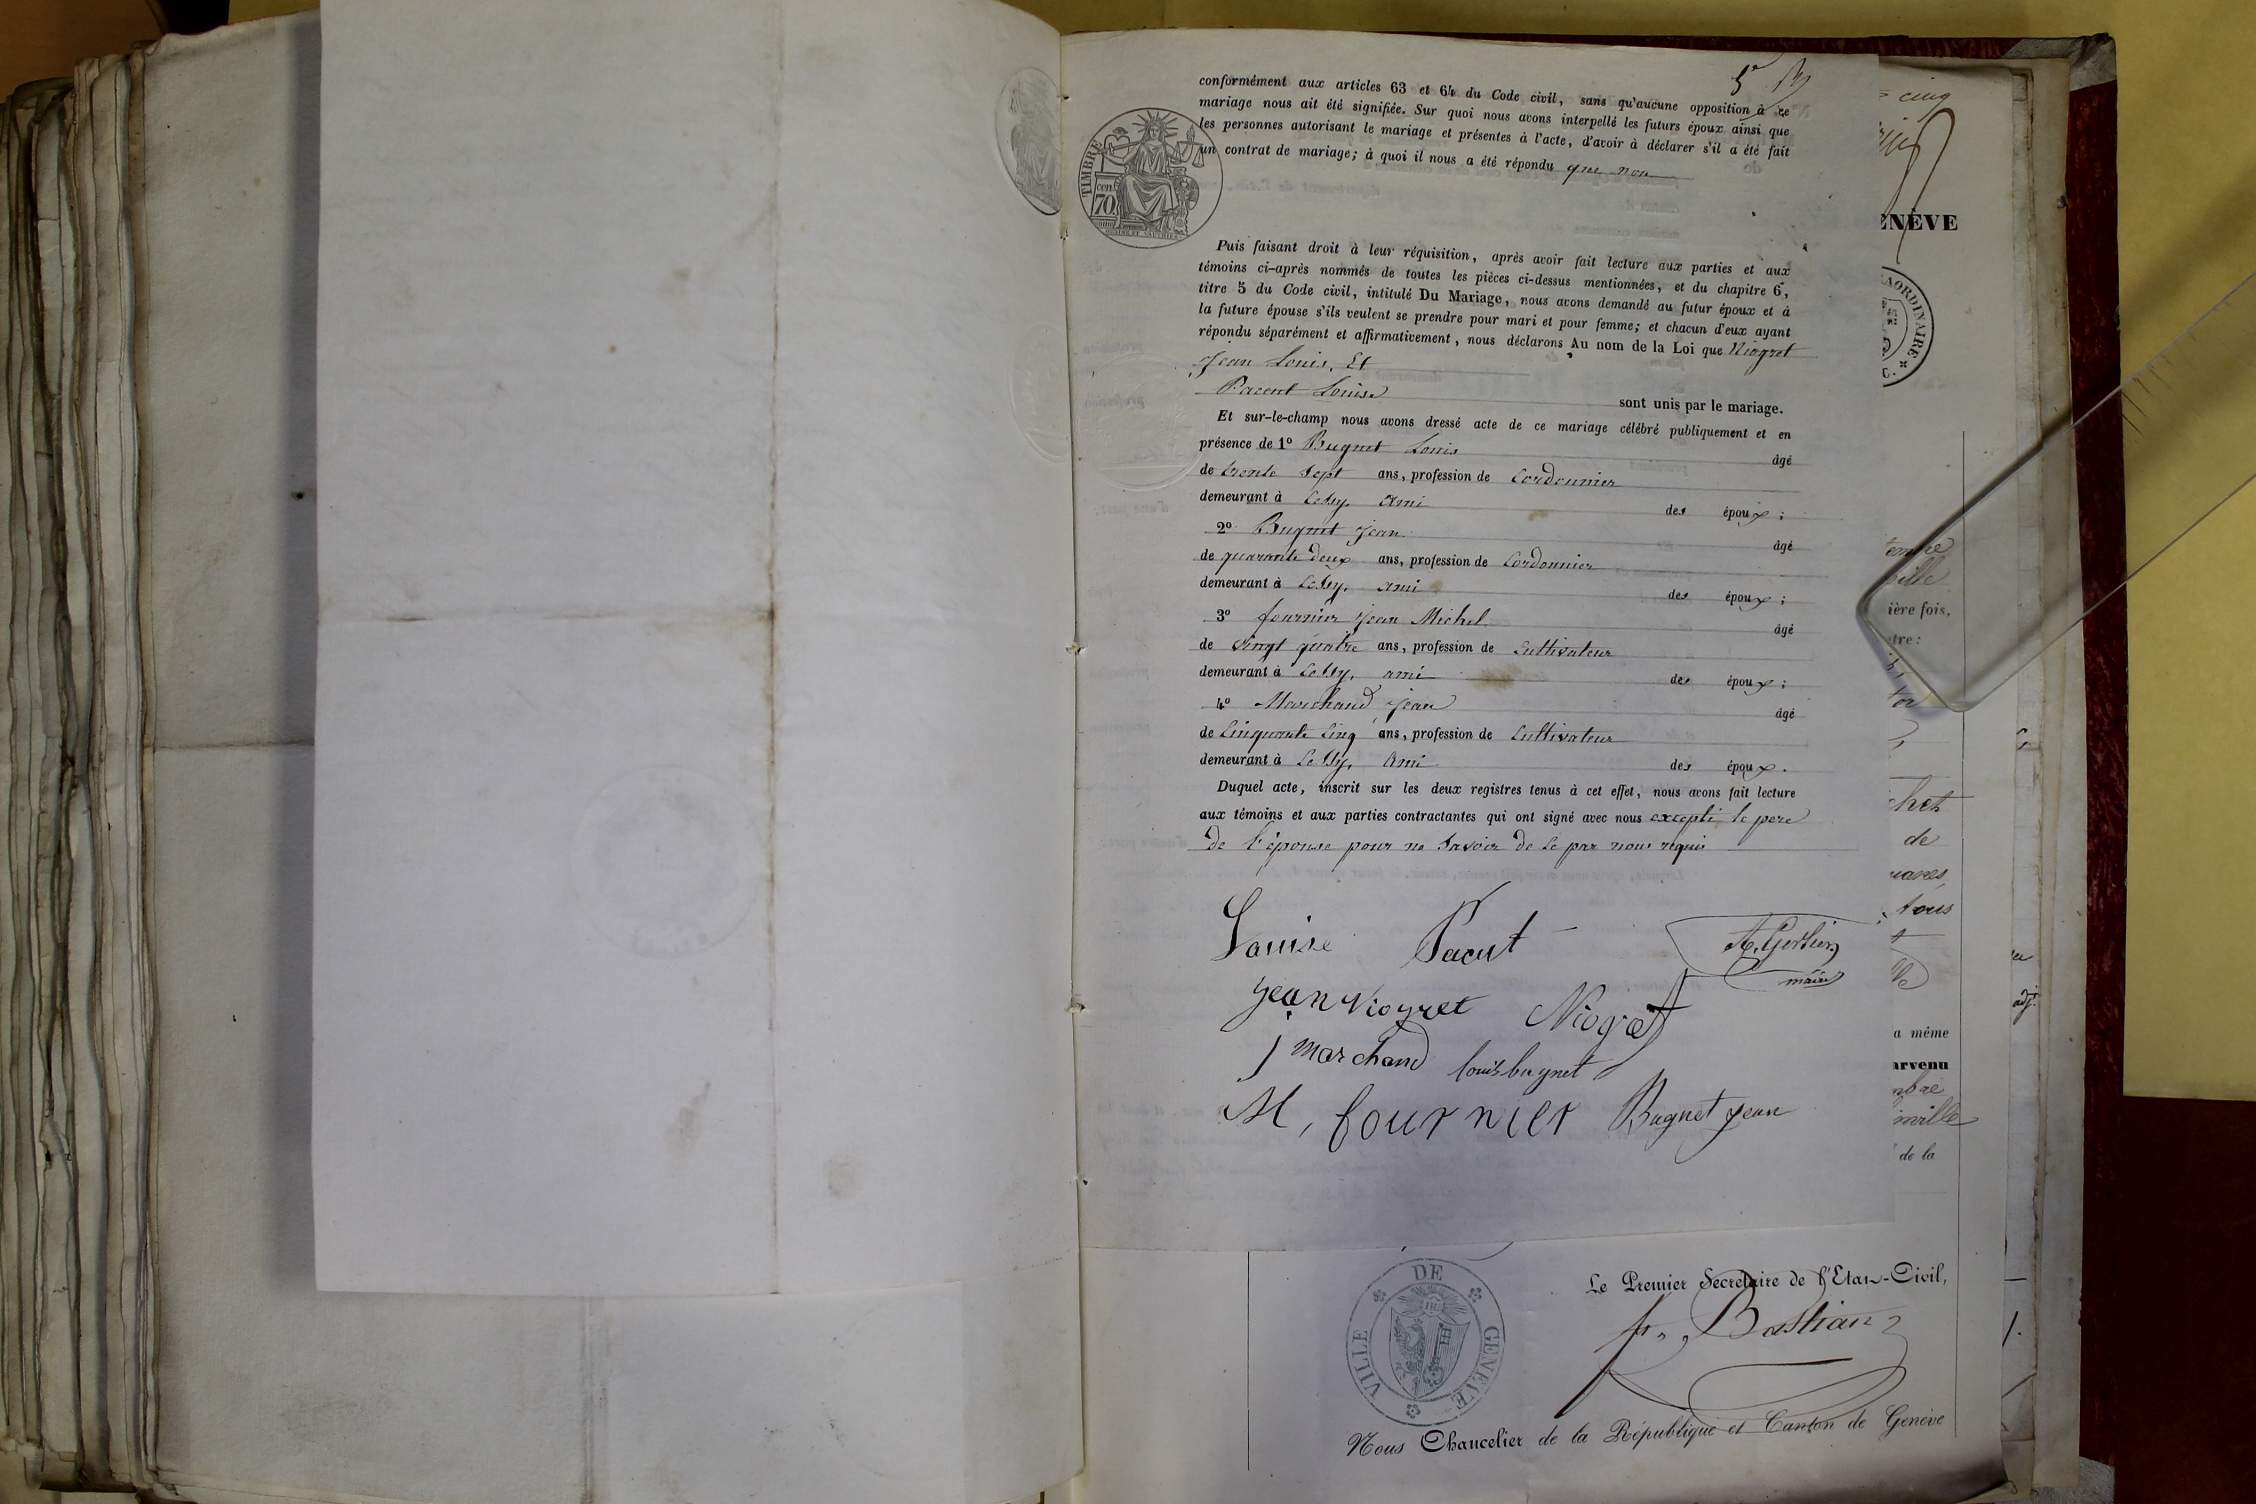 conformément aux articles 63 et 64 du Code civil, sans qu'aucune opposition à ce
mariage nous ait été signifiée. Sur quoi nous avons interpellé les futurs époux ainsi que
les personnes autorisant le mariage et présentes à l'acte, d'avoir à déclarer s'il a été fait
un contrat de mariage; à quoi il nous a été répondu que non
TIMBRE
cen.
70
Puis faisant droit à leur réquisition, après avoir fait lecture aux parties et aux
témoins ci-après nommés de toutes les pièces ci-dessus mentionnées, et du chapitre 6,
titre 5 du Code civil, intitulé Du Mariage, nous avons demandé au futur époux et à
la future épouse s'ils veulent se prendre pour mari et pour femme; et chacun d'eux ayant
répondu séparément et affirmativement, nous déclarons Au nom de la Loi que Niogret
Jean Louis, Et
Louise sont unis par le mariage.
Et sur-le-champ nous avons dressé acte de ce mariage célébré publiquement et en
présence de 1º Bugnet Louis âgé
de trente sept ans, profession de Cordonnier
demeurant à ami des époux;
2º Bugnet Jean âgé
de quarante deux ans, profession de Cordonnier
demeurant à ami des époux;
3º fournier Jean Michel âgé
de vingt quatre ans, profession de Cultivateur
demeurant à ami des époux;
4º Marchand Jean âgé
de Cinquante Cinq ans, profession de Cultivateur
demeurant à Ami des époux.
Duquel acte, inscrit sur les deux registres tenus à cet effet, nous avons fait lecture
aux témoins et aux parties contractantes qui ont signé avec nous excepté le pere
de l'épouse pour ne savoir de ce par nous requis
Louise
maire
Jean Niogret Niogret
J marchand louis bugnet
M, fournier Bugnet Jean
VILLE DE GENEVE
Le Premier Secretaire de l'Etat-Civil,
Bastian
Nous Chancelier de la République et Canton de Genève
cinq
ENÈVE
AORDINAIRE
ière fois,
tre:
de
tous
a même
arvenu
de la
adj.